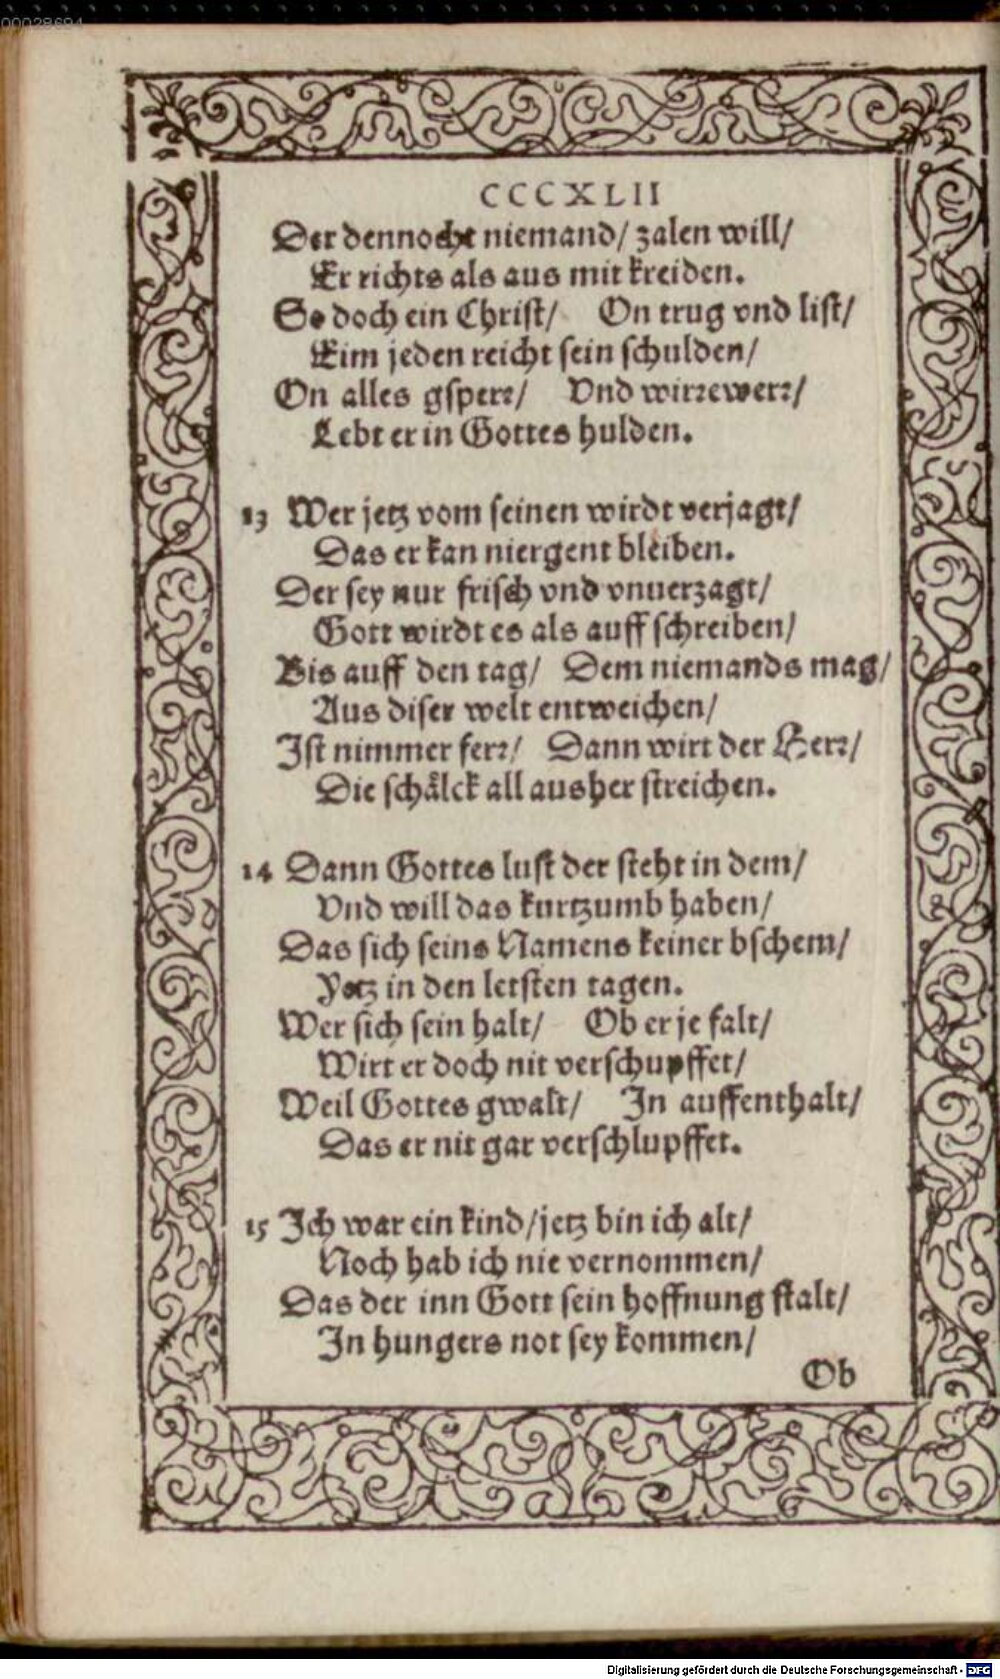 00028694
CCCXLII
Der dennocht niemand/ zalen will/
Er richts als aus mit kreiden.
So doch ein Christ/ On trug vnd list/
Eim jeden reicht sein schulden/
On alles gsperr/ Vnd wirrewerr/
Lebt er in Gottes hulden.
13 Wer jetz vom seinen wirdt verjagt/
Das er kan niergent bleiben.
Der sey nur frisch vnd vnuerzagt/
Gott wirdt es als auff schreiben/
Bis auff den tag/ Dem niemands mag/
Aus diser welt entweichen/
Ist nimmer ferr/ Dann wirt der Herr/
Die schaͤlck all ausher streichen.
14 Dann Gottes lust der steht in dem/
Vnd will das kurtzumb haben/
Das sich seins Namens keiner bschem/
Yetz in den letsten tagen.
Wer sich sein halt/ Ob er je falt/
Wirt er doch nit verschupffet/
Weil Gottes gwalt/ In auffenthalt/
Das er nit gar verschlupffet.
15 Ich war ein kind/ jetz bin ich alt/
Noch hab ich nie vernommen/
Das der inn Gott sein hoffnung stalt/
In hungers not sey kommen/
Ob
Digitalisierung gefördert durch die Deutsche Forschungsgemeinschaft - DFG